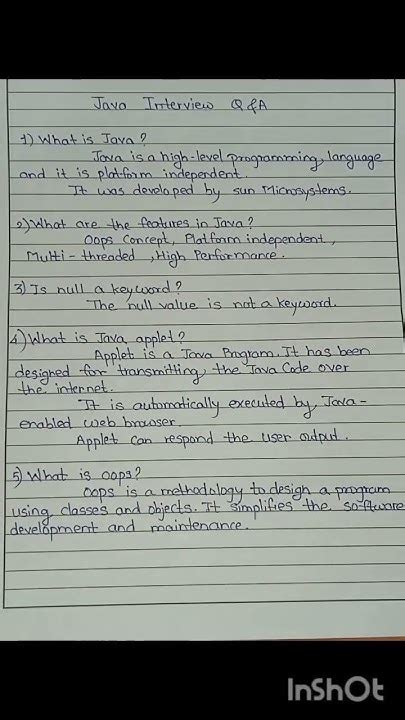 Java Interview Q&A
1) What is Java?
Java is a high-level programming language
and it is platform independent.
It was developed by sun Microsystems.
2) What are the features in Java?
Oops Concept, Platform independent,
Multi-threaded, High Performance.
3) Is null a keyword?
The null value is not a keyword.
4) What is Java applet?
Applet is a Java Program. It has been
designed for transmitting the Java Code over
the internet.
It is automatically executed by Java-
enabled web browser.
Applet Can respond the user output.
5) What is oops?
Oops is a methodology to design a program
using classes and objects. It simplifies the software
development and maintenance.
InShOt